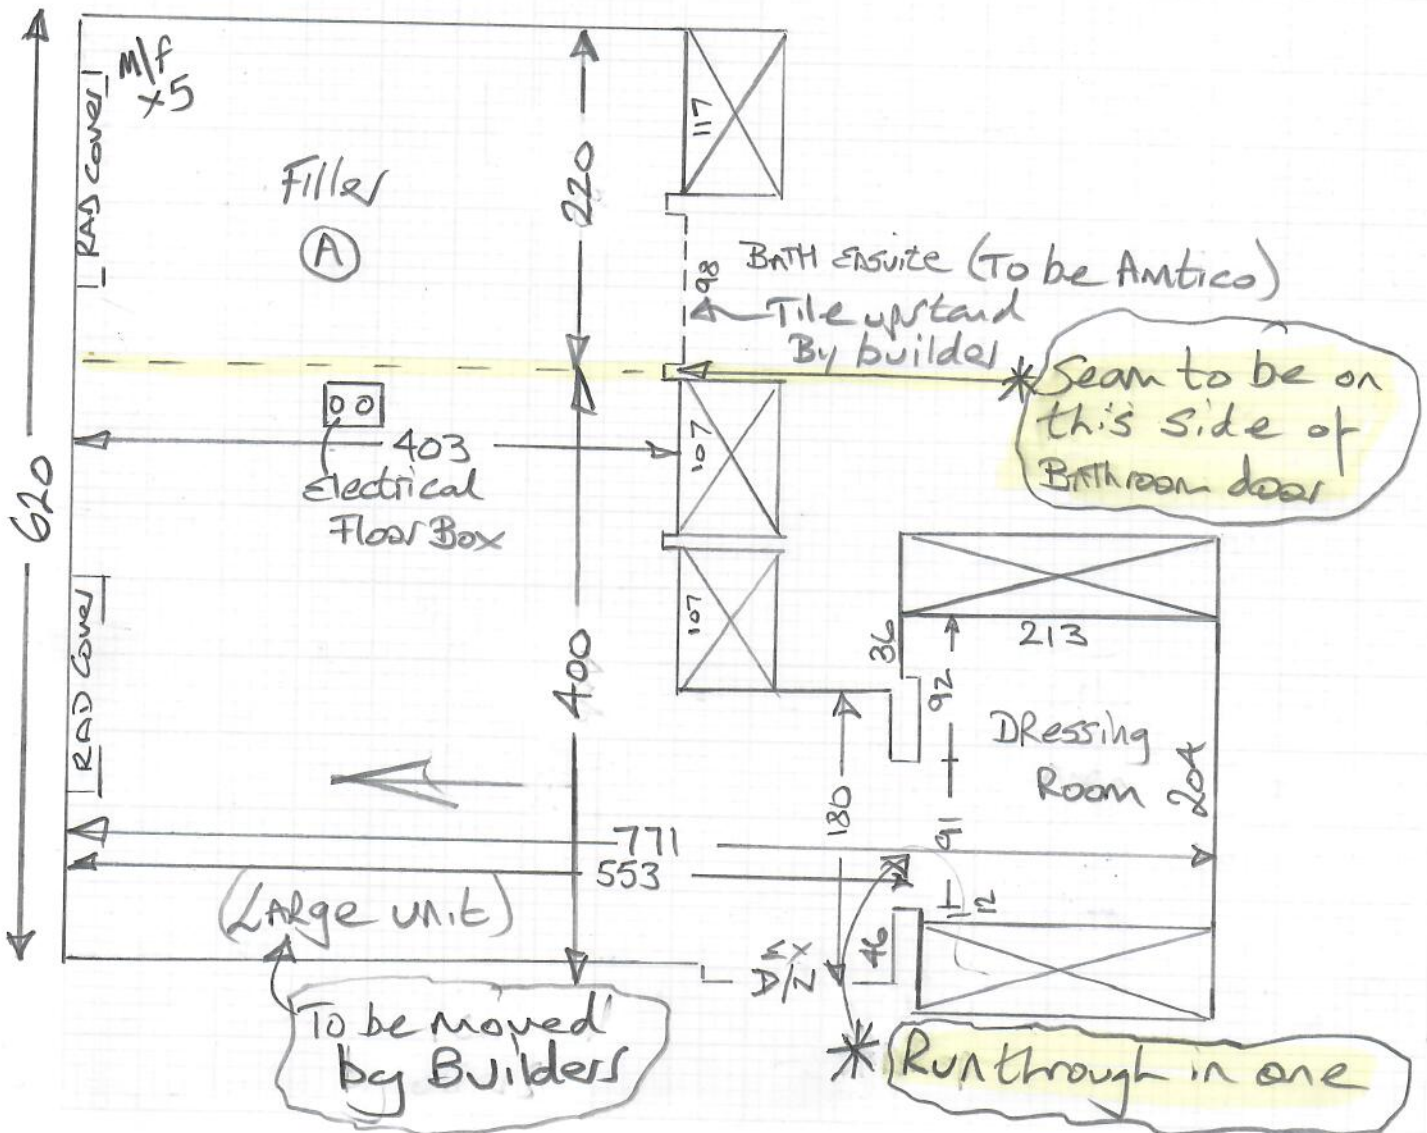 M/f
x5
RAD Cover
Filler
A
220
117
98
BATH Ensuite (To be Amtico)
Tile upstand
By builder
Seam to be on
this side of
BAThroom door
620
403
107
Electrical
Floor Box
107
RAD Cover
400
36
213
92
Dressing
Room
204
180
91
771
553
12
(LARge unit)
46
EX
D/N
To be moved
by Builders
Run through in one